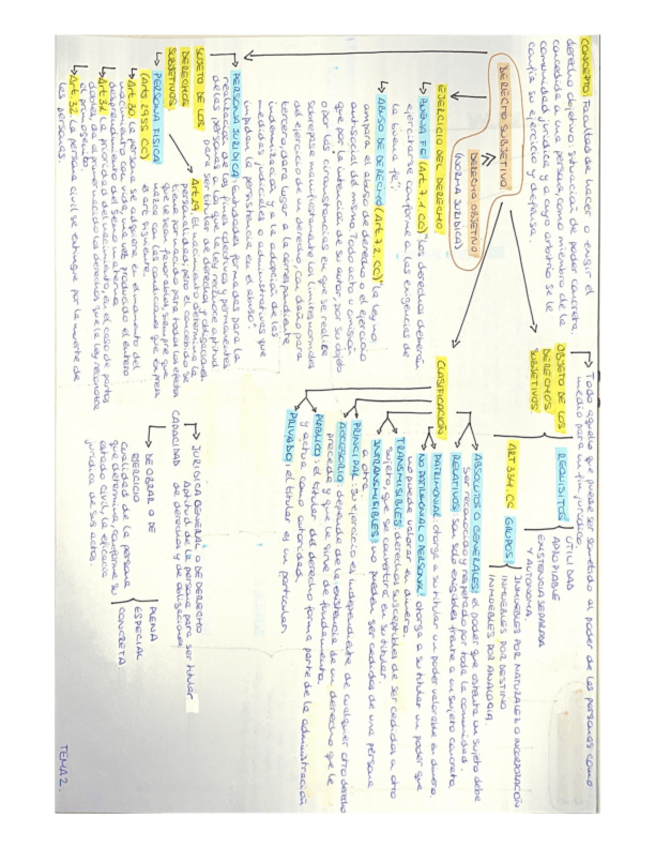 CONCEPTO: Facultad de hacer o exigir el
derecho objetivo; situación de poder concreta
concedida a una persona, como miembro de la
comunidad jurídica y a cuyo arbitrio se le
confía su ejercicio y defensa.
DERECHO SUBJETIVO
DERECHO OBJETIVO
(NORMA JURÍDICA)
EJERCICIO DEL DERECHO
BUENA FE (Art. 7.1 CC) "Los derechos deberán
ejercitarse conforme a las exigencias de
la buena fe".
ABUSO DE DERECHO (Art 7.2. CC) "La ley no
ampara el abuso de derecho o el ejercicio
antisocial del mismo. Todo acto u omisión
que por la intención de su autor, por su objeto
o por las circunstancias en que se realice
sobrepase manifiestamente los límites normales
del ejercicio de un derecho, con daño para
tercero, dará lugar a la correspondiente
indemnización y a la adopción de las
medidas judiciales o administrativas que
impidan la persistencia en el abuso".
PERSONA JURÍDICA: Entidades formadas para la
realización de los fines colectivos y permanentes
de las personas, a las que la ley reconoce aptitud
para ser titular de derechos y obligaciones
SUJETO DE LOS
DERECHOS
SUBJETIVOS
Art 29. El nacimiento determina la
personalidad; pero el concebido se
tiene por nacido para todos los efectos
que le sean favorables, siempre que
nazca con las condiciones que expresa
el art. siguiente.
PERSONA FÍSICA
(Arts 29 ss CC)
Art 30. La persona se adquiere en el momento del
nacimiento con vida, una vez producido el entero
desprendimiento del seno materno.
Art 31. La prioridad del nacimiento, en el caso de partos
dobles, da al primer nacido los derechos que la ley reconoce
al primogénito.
Art. 32. La persona civil se extingue por la muerte de
las personas.
Todo aquello que puede ser sometido al poder de las personas como
medio para un fin jurídico.
OBJETO DE LOS
DERECHOS
SUBJETIVOS
REQUISITOS
UTILIDAD
APROPIABLE
EXISTENCIA SEPARADA
Y AUTÓNOMA.
ART 334 CC GRUPOS
INMUEBLES POR NATURALEZ O INCORPORACIÓN
INMUEBLES POR DESTINO
INMUEBLES POR ANALOGÍA
CLASIFICACIÓN
ABSOLUTOS O GENERALES: el poder que ostenta un sujeto debe
ser reconocido y respetado por toda la comunidad.
RELATIVOS: son solo exigibles frente a un sujeto concreto
PATRIMONIAL: otorga a su titular un poder valorable en dinero.
NO PATRIMONIAL O PERSONAL: otorga a su titular un poder que
no puede valorar en dinero.
TRANSMISIBLES: derechos susceptibles de ser cedidos a otro
sujeto, que se convertirá en su titular.
INTRANSMISIBLES: no pueden ser cedidos de una persona
a otra
PRINCIPAL: su ejercicio es independiente de cualquier otro derecho
ACCESORIO: depende de la existencia de un derecho que le
precede y que le sirve de fundamento.
PÚBLICO: el titular del derecho forma parte de la administración
y actúa como autoridad.
PRIVADO: el titular es un particular.
CAPACIDAD
JURÍDICA GENERAL O DE DERECHO
Aptitud de la persona para ser titular
de derechos y de obligaciones
DE OBRAR O DE
EJERCICIO
cualidad de la persona
que determina, conforme su
estado civil, la eficacia
jurídica de sus actos.
PLENA
ESPECIAL
CONCRETA
TEMA 2.